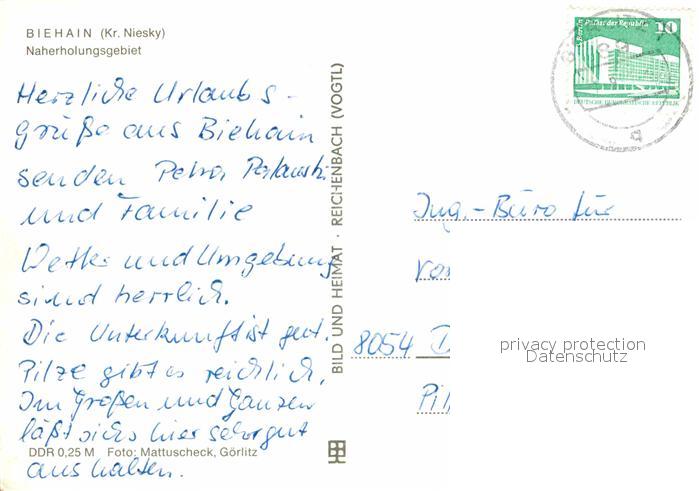 BIEHAIN (Kr. Niesky)
Naherholungsgebiet
Herzliche Urlaubs-
grüße aus Biehain
senden Petra
und Familie
Wetter und Umgebung
sind herrlich.
Die Unterkunft ist gut.
Pilze gibt es reichlich,
Im Großen und Ganzen
läßt sichs hier sehr gut
aushalten.
DDR 0,25 M Foto: Mattuscheck, Görlitz
BILD UND HEIMAT · REICHENBACH (VOGTL)
Berlin, Palast der Republik 10
DEUTSCHE DEMOKRATISCHE REPUBLIK
Ing.-Büro für
8054 D
Pil
privacy protection
Datenschutz